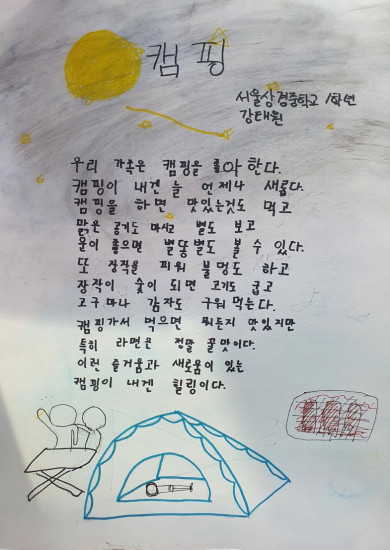 캠핑
서울상경중학교 1학년
강태원
우리 가족은 캠핑을 좋아 한다.
캠핑이 내겐 늘 언제나 새롭다.
캠핑을 하면 맛있는것도 먹고
맑은 공기도 마시고 별도 보고
운이 좋으면 별똥별도 볼 수 있다.
또 장작을 피워 불멍도 하고
장작이 숯이 되면 고기도 굽고
고구마나 감자도 구워 먹는다.
캠핑가서 먹으면 뭐든지 맛있지만
특히 라면은 정말 꿀맛이다.
이런 즐거움과 새로움이 있는
캠핑이 내겐 힐링이다.